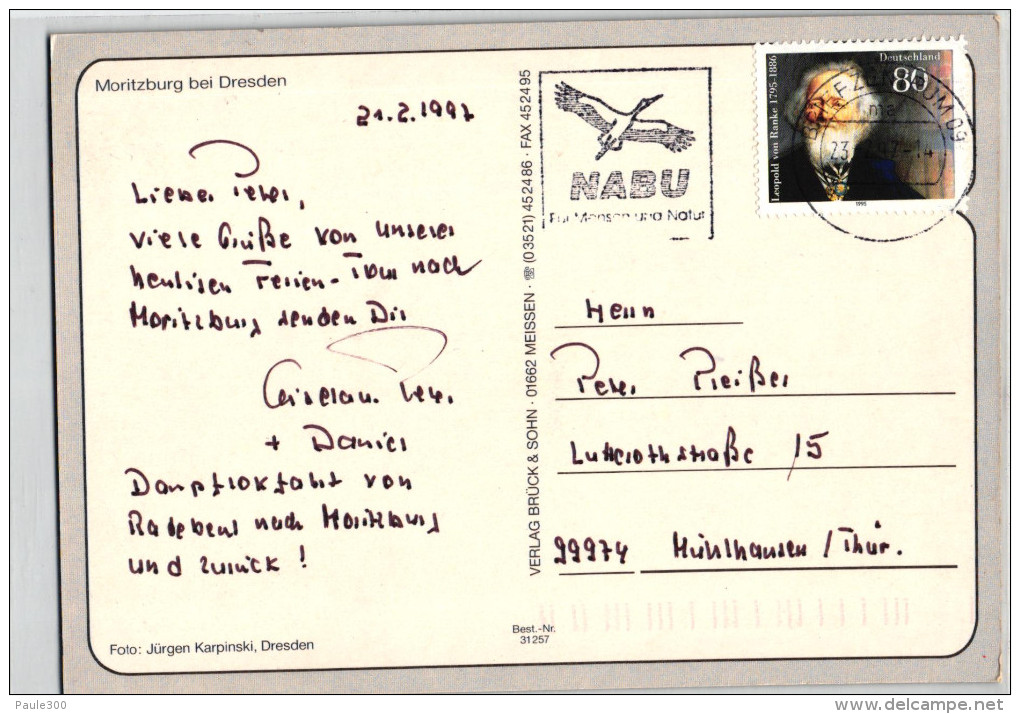 Moritzburg bei Dresden
21.2.1997
Lieber Peter,
viele Grüße von unserer
heutigen Ferien-Tour nach
Moritzburg senden Dir
+ Daniel
Dampflokfahrt von
Radebeul nach Moritzburg
und zurück!
Foto: Jürgen Karpinski, Dresden
VERLAG BRÜCK & SOHN · 01662 MEISSEN · ☏ (03521) 452486 · FAX 452495
Best.-Nr.
31257
NABU
Für Mensch und Natur
Deutschland
80
Leopold von Ranke 1795-1886
1995
BRIEFZENTRUM 09
ma
23.
-14
Herrn
Peter Preißer
Lutterothstraße 15
99974 Mühlhausen / Thür.
Paule300